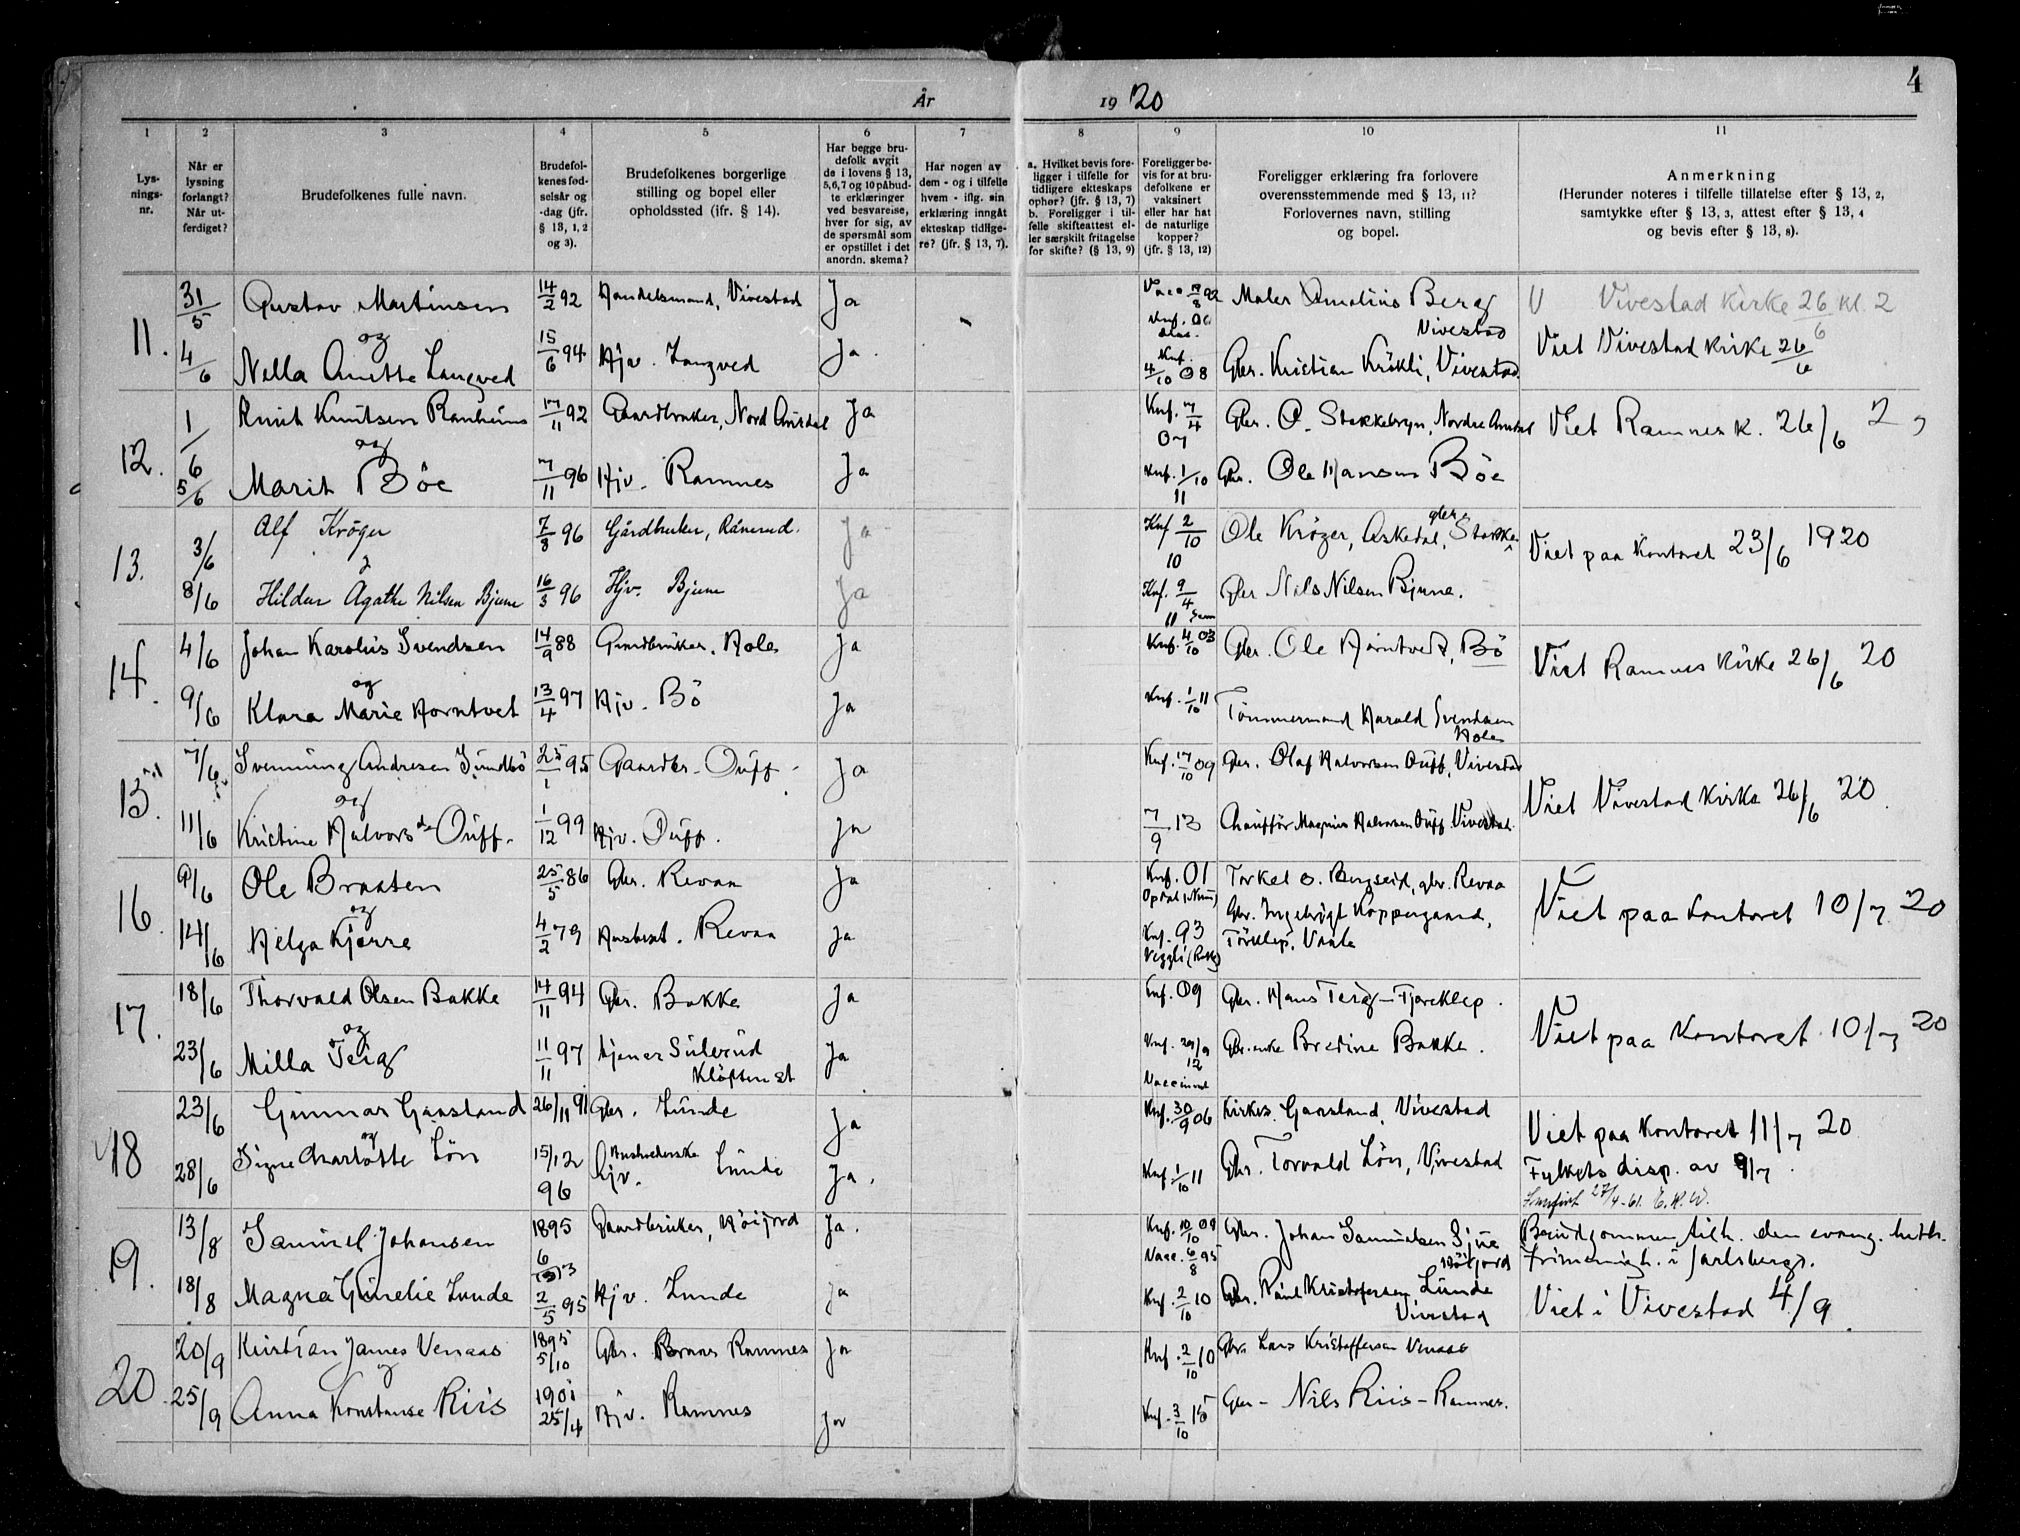 4
År 1920
1
Lysningsnr.
2
Når er lysning forlangt? Når utferdiget?
3
Brudefolkenes fulle navn.
4
Brudefolkenes fødselsår og -dag (jfr. § 13, 1, 2 og 3).
5
Brudefolkenes borgerlige stilling og bopel eller opholdssted (ifr. § 14).
6
Har begge brudefolk avgit de i lovens § 13, 5, 6, 7 og 10 påbudte erklæringer ved besvarelse, hver for sig, av de spørsmål som er opstillet i det anordn. skema?
7
Har nogen av dem - og i tilfelle hvem - iflg. sin erklæring inngått ekteskap tidligere? (jfr. § 13, 7).
8
a. Hvilket bevis foreligger i tilfelle for tidligere ekteskaps ophør? (jfr. § 13, 7) b. Foreligger i tilfelle skifteattest eller særskilt fritagelse for skifte? (§ 13, 9)
9
Foreligger bevis for at brudefolkene er vaksinert eller har hat de naturlige kopper? (jfr. § 13, 12)
10
Foreligger erklæring fra forlovere overensstemmende med § 13, 11? Forlovernes navn, stilling og bopel.
11
Anmerkning (Herunder noteres i tilfelle tillatelse efter § 13, 2, samtykke efter § 13, 3, attest efter § 13, 4 og bevis efter § 13, 8).
11. 31/5 Gustav Martinsen 14/2 92 Handelsmand, Vivestad Ja Vacc 92 Maler Amalius Berg Vivestad Vivestad Kirke 26/6 kl. 2
og
4/6 Nella Anette Langved 15/6 94 Hjv. Langved Ja. Knf. 4/10 08 Gbr. Kristian Kråkli, Vivestad. Viet Vivestad Kirke 26/6
12. 1/6 Knut Knutsen Ranheim 17/11 92 Gaardbruker, Nord Aurdal Ja Knf. 7/4 07 Gbr. O. Stakkebryn, Nordre Aurdal Viet Ramnes k. 26/6 2
og
5/6 Marit Böe 7/11 96 Hjv. Ramnes Ja Knf. 1/10 11 Gbr. Ole Hansen Böe
13. 3/6 Alf Kröger 7/8 96 Gårdbruker, Rånerud. Ja Knf 2/10 10 Ole Krøger, Askedal, gbr. Stokke Viet paa Kontoret 23/6 1920
8/6 Hildur Agathe Nilsen Bjune 16/3 96 Hjv. Bjune Ja Knf. 9/4 11 Sem Gbr Nils Nilsen Bjune.
14. 4/6 Johan Karolius Svendsen 14/9 88 Gaardbruker. Holen Ja Knf. 4/10 03 Gbr. Ole Horntvedt, Bö Viet Ramnes Kirke 26/6 20
og
9/6 Klara Marie Horntvet 13/4 97 Hjv. Bö Ja Knf. 1/10 11 Tömmermand Harald Svendsen Holen
15. 7/6 Svenning Andresen Sundbö 25/1 95 Gaardbr. Duff. Ja Knf. 17/10 09 Gbr. Olaf Halvorsen Duff, Vivestad Viet Vivestad Kirke 26/6 20.
og
11/6 Kristine Halvorsdr Duff. 1/12 99 Hjv. Duff. Ja 7/9 13 Chauffør Magnus Halvorsen Duff. Vivestad.
16. 9/6 Ole Braaten 25/5 86 Gbr. Revaa Ja Knf. 01 Opdal (Num) Torkel O. Bergseid, gbr. Revaa Viet paa kontoret 10/7 20
og
14/6 Helga Kjerre 4/2 79 Husbest. Revaa Ja Knf. 93 Veggli (Roll) Gbr. Ingebrigt Koppergaard, Töreklep, Vaale
17. 18/6 Thorvald Olsen Bakke 14/11 94 Gbr. Bakke Ja Knf. 09 Gbr. Hans Teig - Tjoreklep. Viet paa Kontoret 10/7 20
og
23/6 Milla Teig 11/11 97 tjener Sulerud Klöften st Ja Knf. 29/9 12 Vaccinered Gbr. enke Bredine Bakke.
18 23/6 Gunnar Gaasland 26/11 91 Gbr. Lunde Ja Knf. 30/9 06 Kirkes. Gaasland, Vivestad Viet paa Kontoret 11/7 20
og
28/6 Signe Charlotte Lön 15/12 96 Hjv. Lunde Ja. Knf. 1/10 11 Gbr. Torvald Lön, Vivestad Fylkets disp. av 9/7.
27/4-61. E.H.W.
19. 13/8 Samuel Johansen 1895 6 Gaardbruker, Höijord Ja. Knf. 10/10 09 Vacc. 6/8 95 Gbr. Johan Samuelsen Sjue Höijord Brudgommen tilh. den evang. luth. frimenigh. i Jarlsberg.
18/8 Magna Gurelie Lunde 2/5 95 Hjv. Lunde Ja Knf. 2/10 10 Gbr. Paul Kristofersen Lunde Vivestad Viet i Vivestad 4/9.
20. 20/9 Kristian James Venaas 1895 5/10 Gbr. Ramnes Ja Knf. 2/10 10 Gbr. Lars Kristoffersen Venaas
og
25/9 Anna Konstanse Riis 1901 25/4 Hjv. Ramnes Ja Knf. 3/10 15 Gbr - Nils Riis - Ramnes.